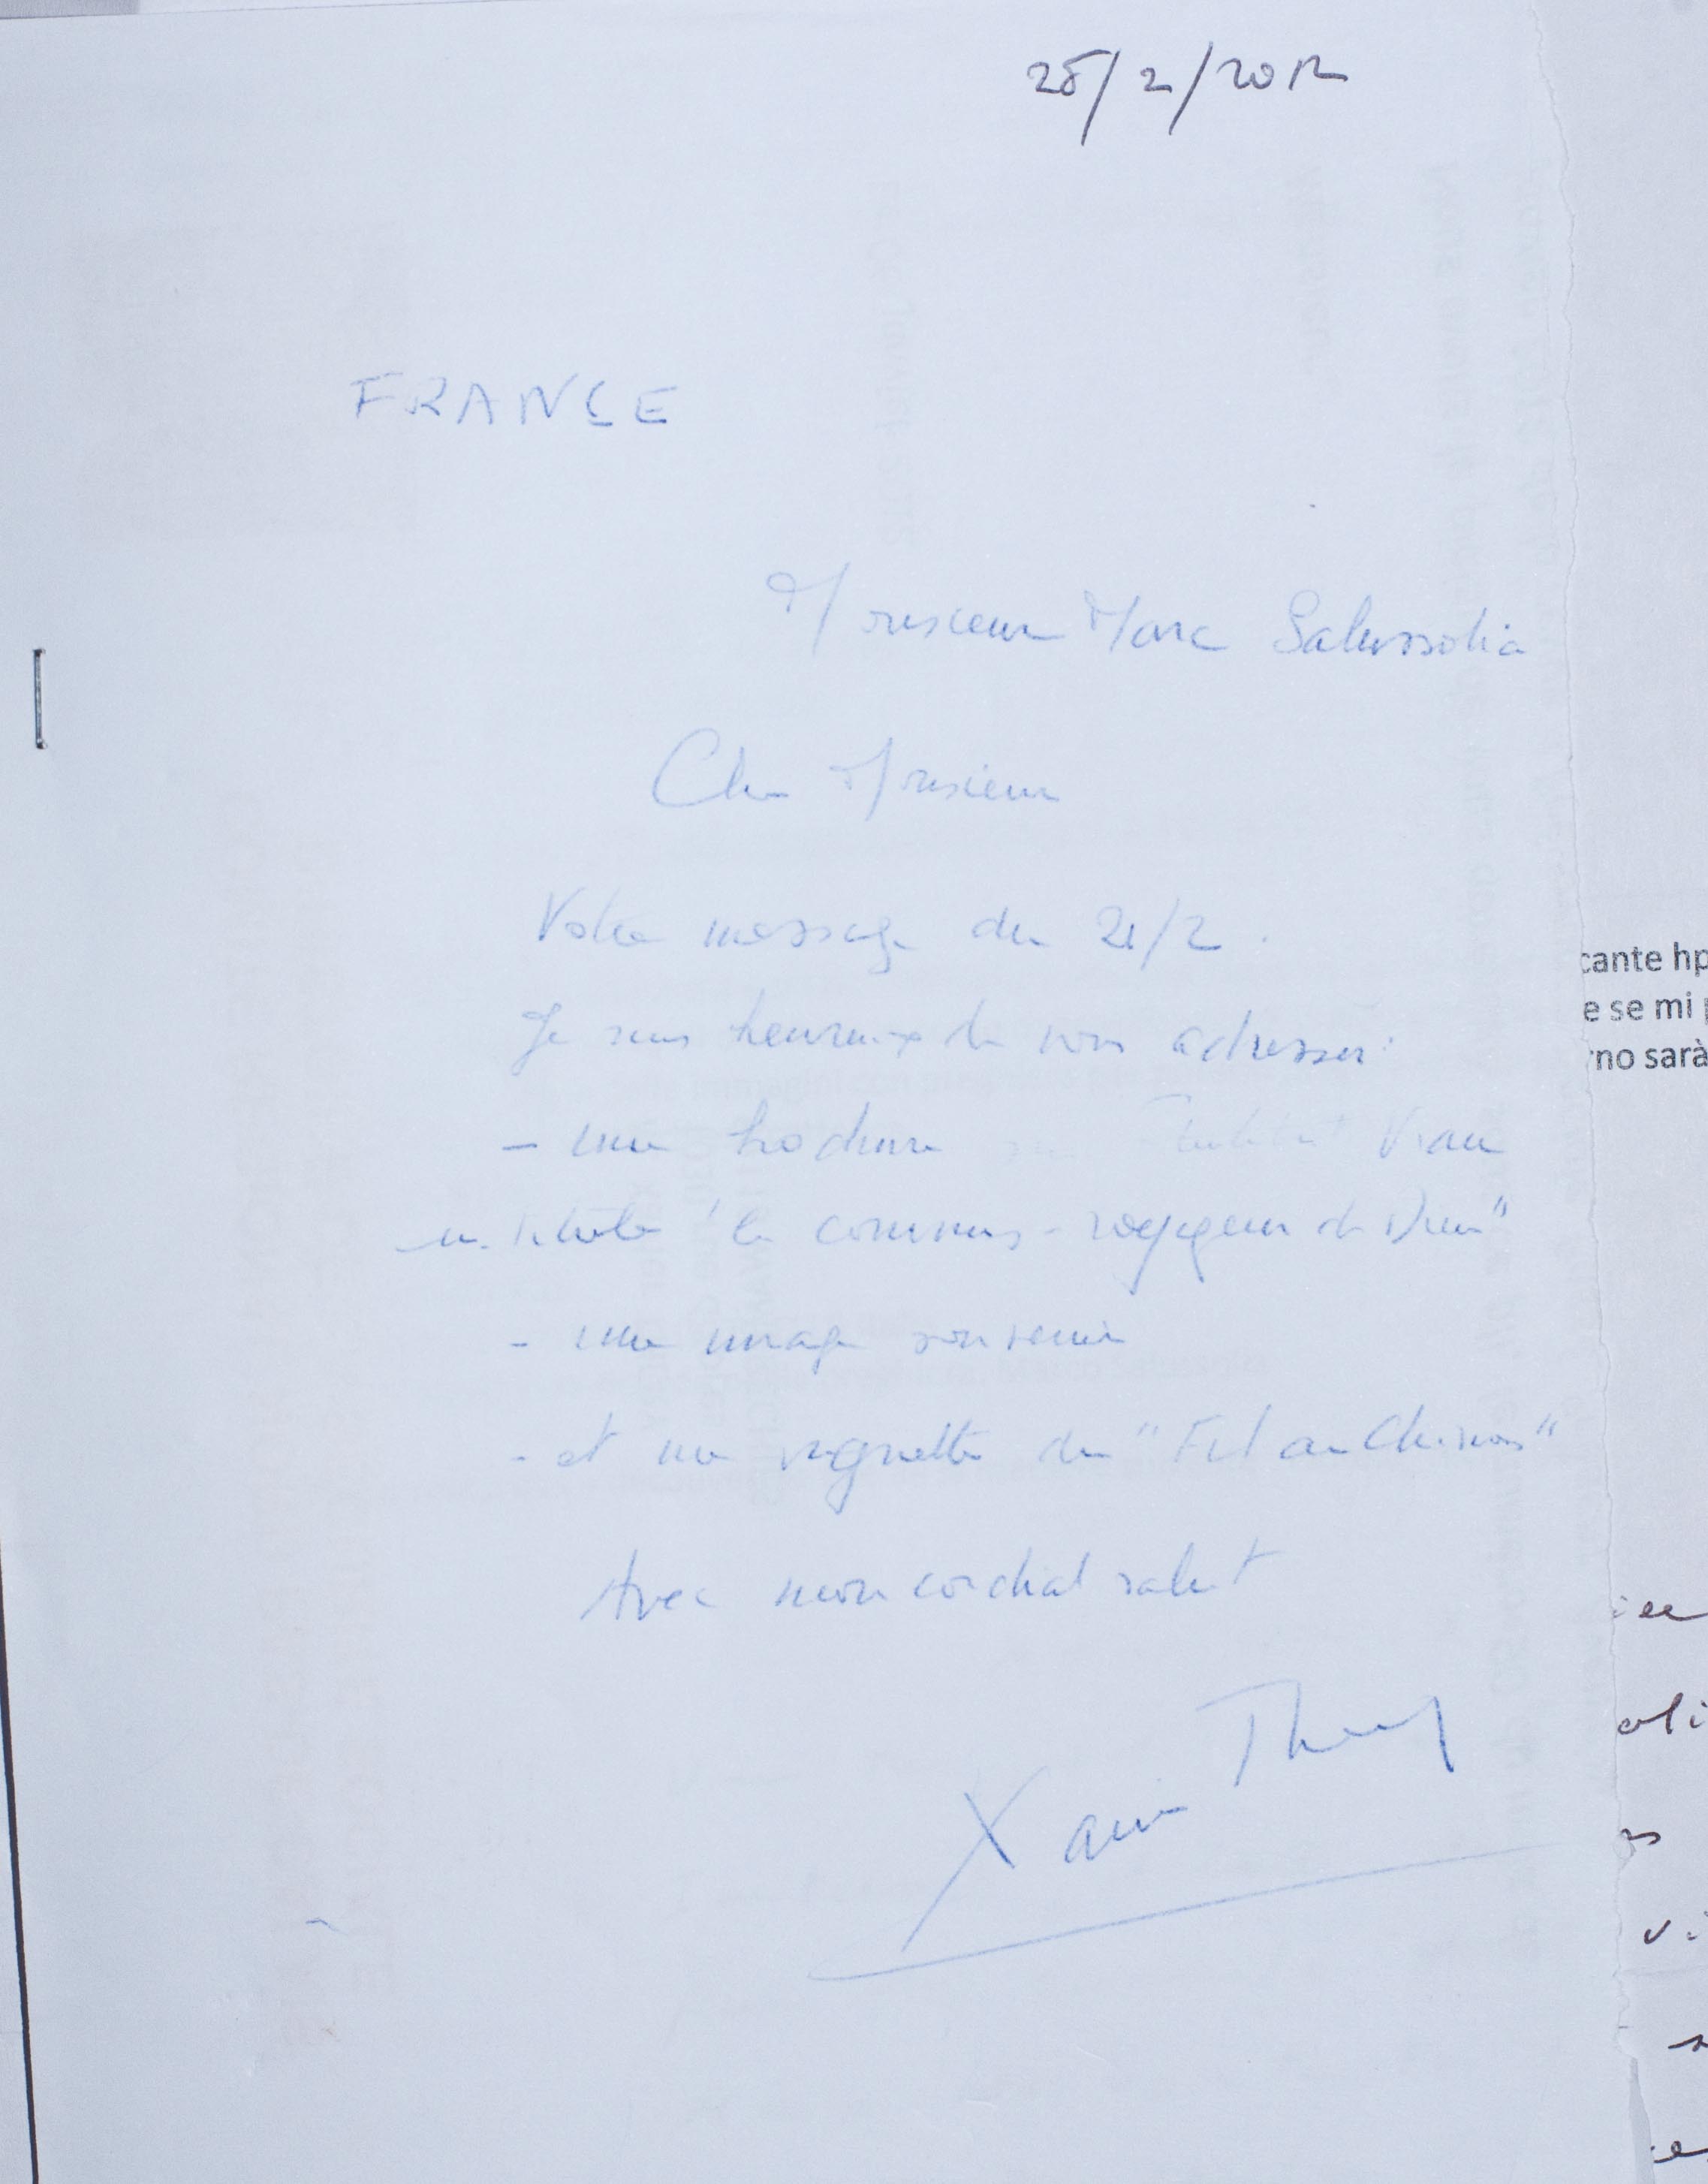 28/2/2012
FRANCE
Monsieur Marc Salussolia
Cher Monsieur
Votre message du 21/2.
Je suis heureux de vous adresser:
- une brochure Vrau
intitulée "le commis-voyageur de Dieu"
- une image souvenir
- et une vignette du "Fil au Chinois"
Avec mon cordial salut
Xavier Thery
cante hp
e se mi p
rno sarà